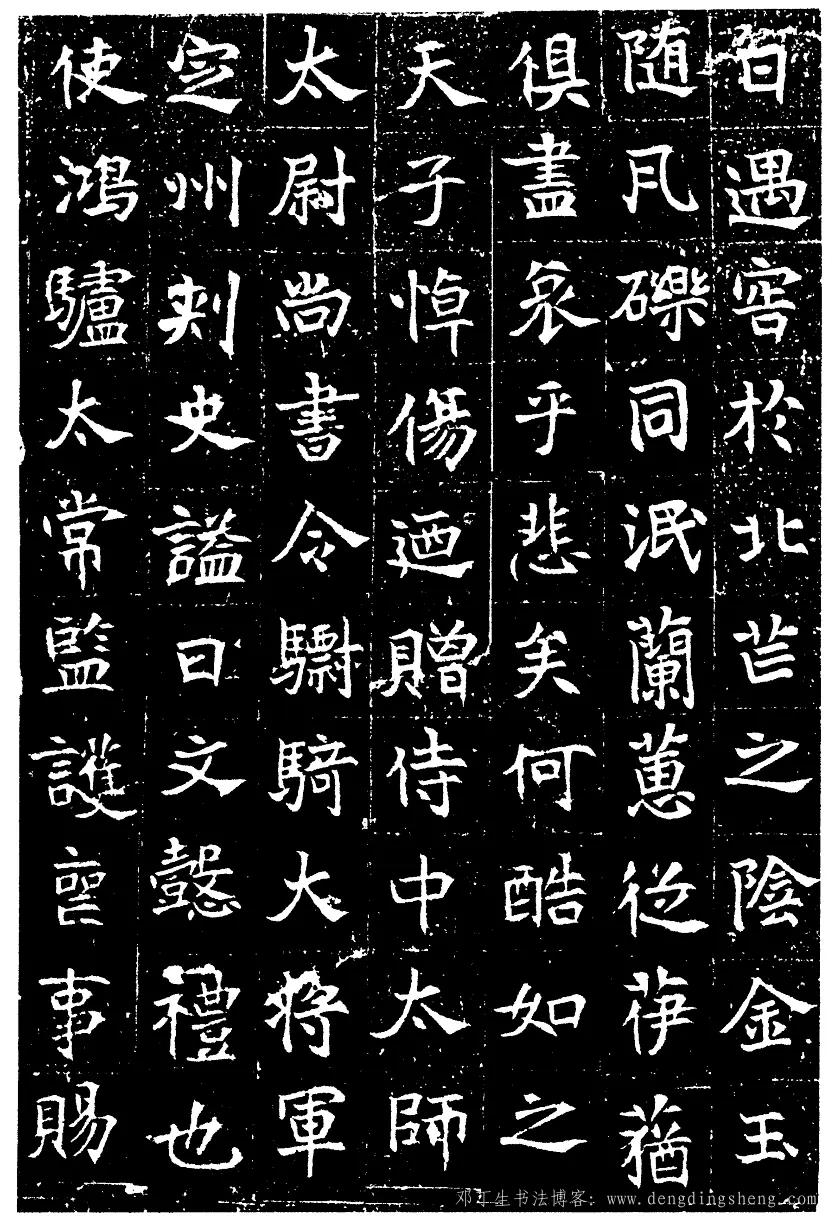 日遇害於北芒之陰金玉
随凡礫同泯蘭蕙從茾蕕
俱盡哀乎悲矣何酷如之
天子悼傷迺贈侍中太師
太尉尚書令驃騎大將軍
定州刺史謚曰文懿禮也
使鴻驢太常監護喪事賜
邓丁生书法博客：www.dengdingsheng.com